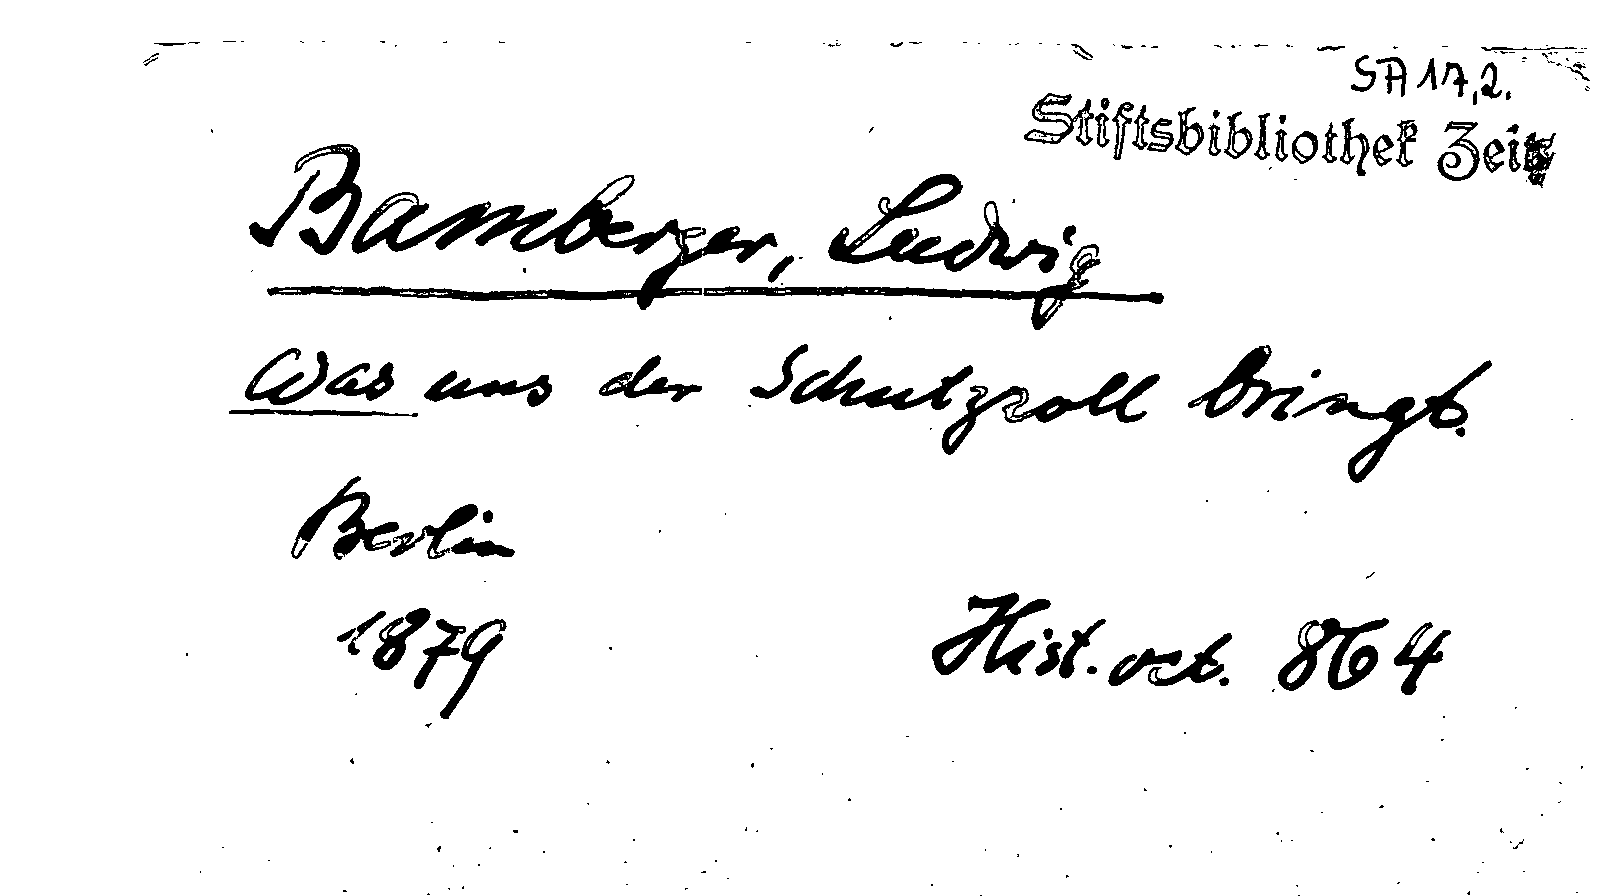 SA 17,2.
Stiftsbibliothek Zeitz
Bamberger, Ludwig
Was uns der Schutzzoll bringt.
Berlin
1879
Hist. oct. 864